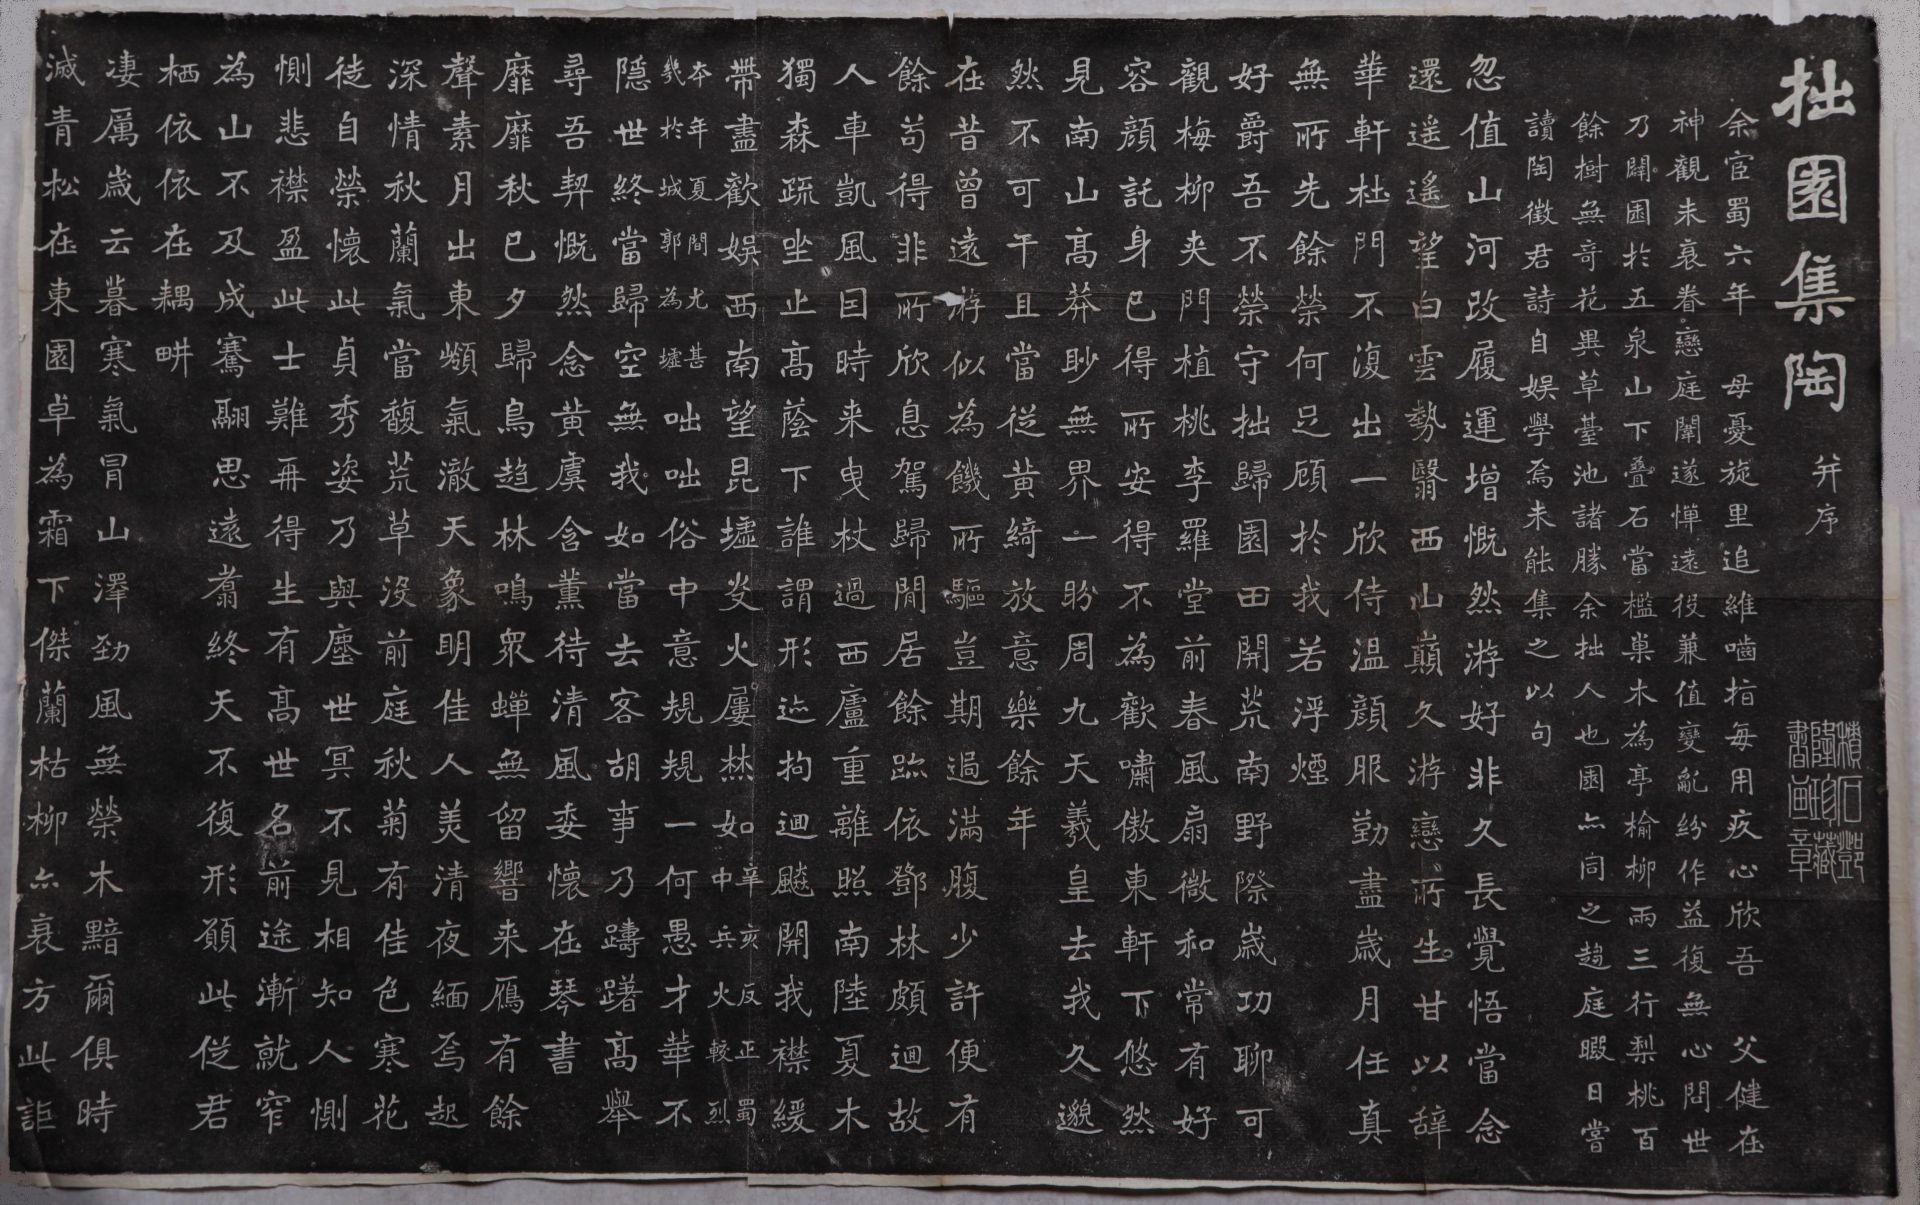 拙園集陶 并序
積石鄧
隆珍藏
書畫章
余宦蜀六年　母憂旋里追維嚙指每用疚心欣吾　父健在
神觀未衰眷戀庭闈遂憚遠役兼值變亂紛作益復無心問世
乃闢園於五泉山下疊石當檻巢木為亭榆柳兩三行梨桃百
餘樹無奇花異草臺池諸勝余拙人也園亦同之趨庭暇日嘗
讀陶徵君詩自娛學焉未能集之以句
忽值山河改履運增慨然游好非久長覺悟當念
還遙遙望白雲勢翳西山巔久游戀所生甘以辭
華軒杜門不復出一欣侍溫顏服勤盡歲月任真
無所先餘榮何足顧於我若浮煙
好爵吾不榮守拙歸園田開荒南野際歲功聊可
觀梅柳夾門植桃李羅堂前春風扇微和常有好
容顏託身已得所安得不為歡嘯傲東軒下悠然
見南山高莽眇無界一盼周九天羲皇去我久邈
然不可干且當從黃綺放意樂餘年
在昔曾遠游似為饑所驅豈期過滿腹少許便有
餘苟得非所欣息駕歸閒居餘跡依鄧林頗迴故
人車凱風因時來曳杖過西廬重離照南陸夏木
獨森疏坐止高蔭下誰謂形迹拘迴飈開我襟緩
帶盡歡娛西南望昆墟炎火屢焚如辛亥反正蜀中兵火較烈
本年夏間尤甚幾於城郭為墟咄咄俗中意規規一何愚才華不
隱世終當歸空無我如當去客胡事乃躊躇高舉
尋吾契慨然念黃虞含薰待清風委懷在琴書
靡靡秋已夕歸鳥趨林鳴眾蟬無留響來雁有餘
聲素月出東嶺氣澈天象明佳人美清夜緬焉起
深情秋蘭氣當馥荒草沒前庭秋菊有佳色寒花
徒自榮懷此貞秀姿乃與塵世冥不見相知人惻
惻悲襟盈此士難再得生有高世名前途漸就窄
為山不及成騫翮思遠翥終天不復形願此從君
栖依依在耦畊
淒厲歲云暮寒氣冒山澤勁風無榮木黯爾俱時
滅青松在東園卓為霜下傑蘭枯柳亦衰方此詎